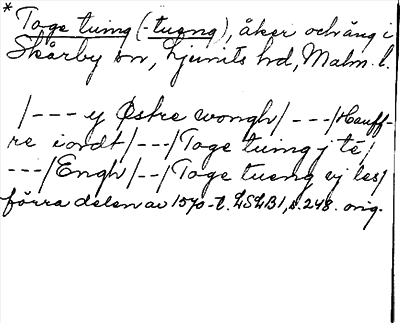 * Toge tuing (-tueng), åker och äng i
Skårby sn, Ljunits hd, Malm. l.
/--- y Østre wongh/ ---/Hauff-
re iordt/---/Toge tuing j té/
---/Engh/--/Toge tueng vj les/
förra delen av 1570-t. LSLB1, s. 248. orig.